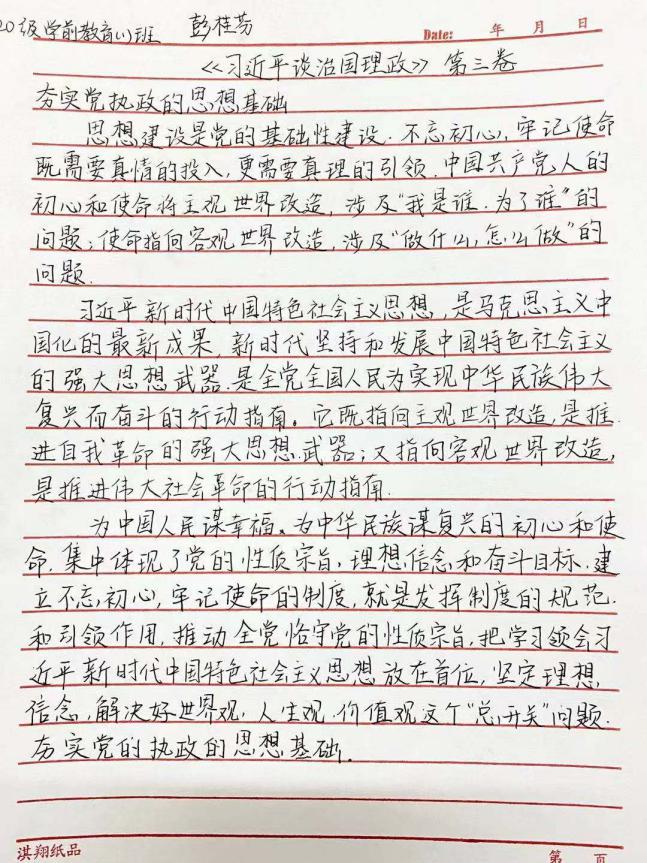 20级学前教育(1)班 彭桂芬
Date: 年 月 日
《习近平谈治国理政》 第三卷
夯实党执政的思想基础
思想建设是党的基础性建设. 不忘初心, 牢记使命
既需要真情的投入, 更需要真理的引领. 中国共产党人的
初心和使命将主观世界改造, 涉及“我是谁. 为了谁”的
问题; 使命指向客观世界改造, 涉及“做什么, 怎么做”的
问题.
习近平新时代中国特色社会主义思想, 是马克思主义中
国化的最新成果, 新时代坚持和发展中国特色社会主义
的强大思想武器. 是全党全国人民为实现中华民族伟大
复兴而奋斗的行动指南。它既指向主观世界改造, 是推
进自我革命的强大思想武器; 又指向客观世界改造,
是推进伟大社会革命的行动指南.
为中国人民谋幸福、为中华民族谋复兴的初心和使
命, 集中体现了党的性质宗旨, 理想信念和奋斗目标. 建
立不忘初心, 牢记使命的制度, 就是发挥制度的规范
和引领作用, 推动全党恪守党的性质宗旨, 把学习领会习
近平新时代中国特色社会主义思想放在首位, 坚定理想
信念, 解决好世界观, 人生观. 价值观这个“总开关”问题.
夯实党的执政的思想基础.
淇翔纸品
第 页